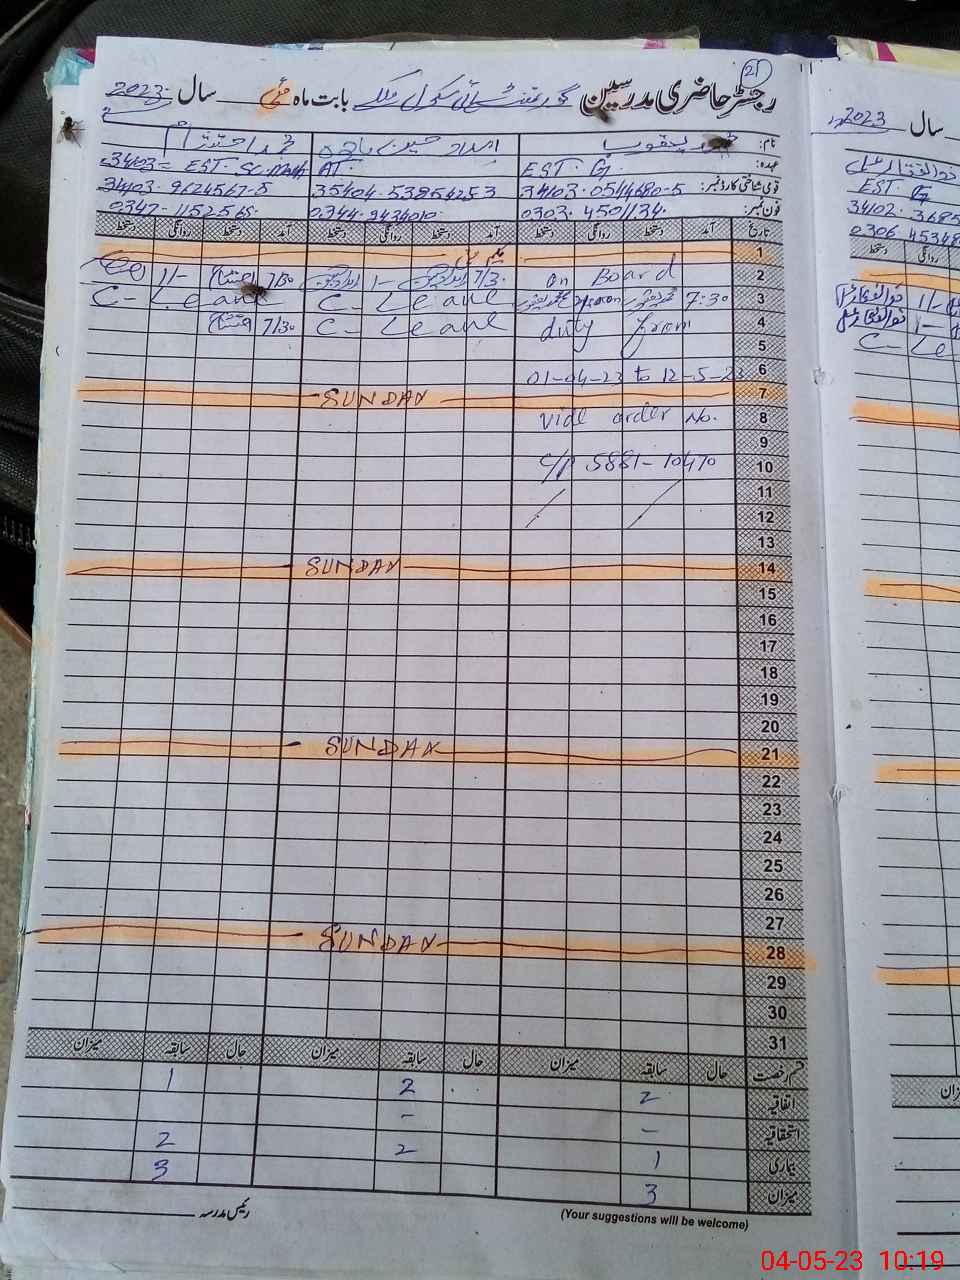 21
رجسٹر حاضری مدرسین گورنمنٹ ہائی سکول بابت ماہ مئی سال 2023
نام: محمد یعقوب امداد حسین
عہدہ: EST. G. AT. EST. SC. Math
قومی شناختی کارڈ نمبر: 34103.0544680-5 35404.5385625 3 34103.9624567-5
فون نمبر: 0303.4501134. 0344.9434010. 0347-1152565.
تاریخ آمد دستخط روانگی دستخط آمد دستخط روانگی دستخط آمد دستخط روانگی دستخط
1 یکم مئی
2 on Board 7/30 1/-
3 7:30 C- Leave C- Leave
4 duty from C- Leave 7/30
5
6 01-04-23 to 12-5-23
7 SUNDAY
8 vide order No.
9
10 C/P 5881-10470
11
12
13
14 SUNDAY
15
16
17
18
19
20
21 SUNDAY
22
23
24
25
26
27
28 SUNDAY
29
30
31
قسم رخصت حال سابقہ میزان حال سابقہ میزان حال سابقہ میزان
اتفاقیہ 2 2 1
استحقاقیہ - -
بیماری 1 2 2
میزان 3 3
(Your suggestions will be welcome)
رئیس مدرسہ
سال 2023
ذوالفقار علی
EST. G
34102.3685
0306 45348
روانگی دستخط
1/-
1-
C- Le
04-05-23 10:19